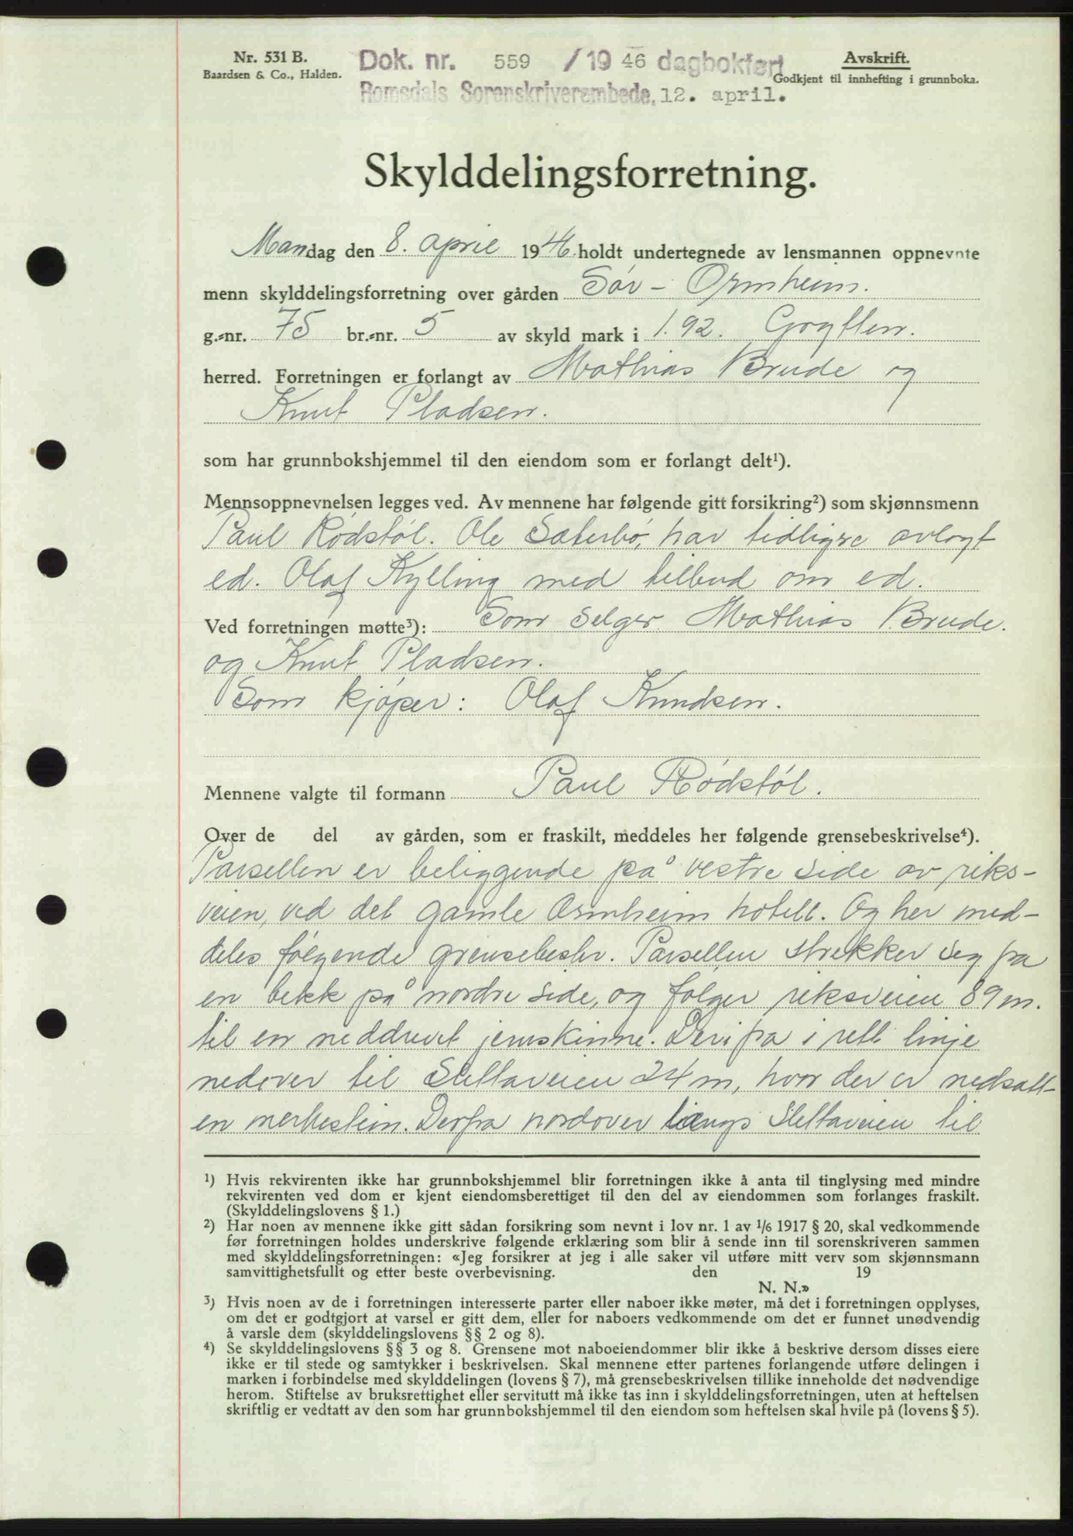 Nr. 531 B.
Baardsen & Co., Halden.
Dok. nr. 559 /19 46 dagbokført
Romsdals Sorenskriverembede, 12. april.
Avskrift.
Godkjent til innhefting i grunnboka.
Skylddelingsforretning.
Mandag den 8. april 1946. holdt undertegnede av lensmannen oppnevnte
menn skylddelingsforretning over gården Sør - Ormheim.
g.-nr. 75 br.-nr. 5 av skyld mark i 1.92. Grytten.
herred. Forretningen er forlangt av Mathias Brude og
Knut Pladsen.
som har grunnbokshjemmel til den eiendom som er forlangt delt¹).
Mennsoppnevnelsen legges ved. Av mennene har følgende gitt forsikring²) som skjønnsmenn
Paul Rødstøl. Ole Sæterbø, har tidligere avlagt
ed. Olaf Kylling med tilbud om ed.
Ved forretningen møtte³): Som selger Mathias Brude.
og Knut Pladsen.
Som kjøper: Olaf Knudsen.
Mennene valgte til formann Paul Rødstøl.
Over de del av gården, som er fraskilt, meddeles her følgende grensebeskrivelse⁴).
Parsellen er beliggende på vestre side av riks-
veien, ved det gamle Ormheim hotell. Og her med-
deles følgende grensebeskr. Parsellen strekker seg fra
en bekk på nordre side, og følger riksveien 89 m.
til en neddrevet jernskinne. Derifra i rett linje
nedover til Slettaveien 24 m, hvor der er nedsatt
en merkestein. Derfra nordover langs Slettaveien til
¹) Hvis rekvirenten ikke har grunnbokshjemmel blir forretningen ikke å anta til tinglysing med mindre
rekvirenten ved dom er kjent eiendomsberettiget til den del av eiendommen som forlanges fraskilt.
(Skylddelingslovens § 1.)
²) Har noen av mennene ikke gitt sådan forsikring som nevnt i lov nr. 1 av ¹/6 1917 § 20, skal vedkommende
før forretningen holdes underskrive følgende erklæring som blir å sende inn til sorenskriveren sammen
med skylddelingsforretningen: «Jeg forsikrer at jeg i alle saker vil utføre mitt verv som skjønnsmann
samvittighetsfullt og etter beste overbevisning. den 19
N. N.»
³) Hvis noen av de i forretningen interesserte parter eller naboer ikke møter, må det i forretningen opplyses,
om det er godtgjort at varsel er gitt dem, eller for naboers vedkommende om det er funnet unødvendig
å varsle dem (skylddelingslovens §§ 2 og 8).
⁴) Se skylddelingslovens §§ 3 og 8. Grensene mot naboeiendommer blir ikke å beskrive dersom disses eiere
ikke er til stede og samtykker i beskrivelsen. Skal mennene etter partenes forlangende utføre delingen i
marken i forbindelse med skylddelingen (lovens § 7), må grensebeskrivelsen tillike inneholde det nødvendige
herom. Stiftelse av bruksrettighet eller servitutt må ikke tas inn i skylddelingsforretningen, uten at heftelsen
skriftlig er vedtatt av den som har grunnbokshjemmel til den eiendom som heftelsen skal hvile på (lovens § 5).